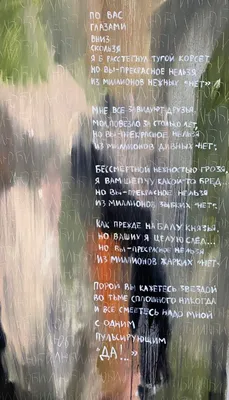 По вас
глазами
вниз
скользя
я б расстегнул тугой корсет
но вы - прекрасное нельзя
из миллионов нежных "нет"!

Мне все завидуют друзья,
но вы - прекрасное нельзя
из миллионов дивных "нет".

Бессмертной нежностью грозя,
я вам шепчу какой-то бред,
но вы - прекрасное нельзя
из миллионов зыбких "нет".

Как прежде на балу князья,
но вашу я целую след...
но вы - прекрасное нельзя
из миллионов жарких "нет"

Порой вы кажетесь звездой
во тьме сплошного никогда
и все сметесь надо мной
с одним
пульсирующим
"Да!.."